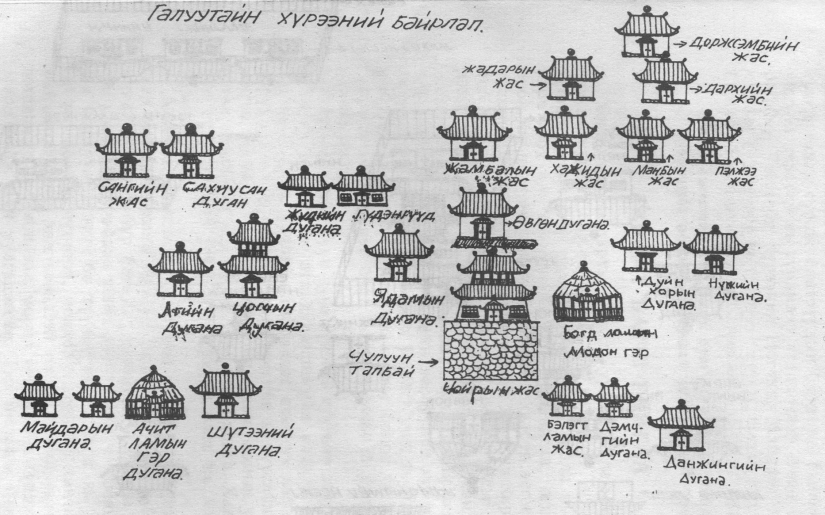 Галуутайн хүрээний байрлал.
Доржсэмбийн
жас.
жадарын
жас
Дархийн
жас.
Жамбалын
жас
Хажидын
жас
Манбын
жас
Пэлжээ
жас
Сангийн
жас
Сахиусан
Дуган
Жудийн
Дугана
Гүдэнгүүд
Өвгөн дугана.
Агийн
Дугана
Цогчин
Дугана.
Ядамын
Дугана.
Богд ламын
Модон гэр
Дуйн
хорын
Дугана.
Нүжийн
Дугана.
Чулуун
талбай
Чойрын жас
Майдарын
дугана.
Ачит
ламын
гэр
дугана.
Шүтээний
дугана.
Бэлэгт
ламын
жас.
Дэмч-
гийн
дугана.
Данжингийн
дугана.